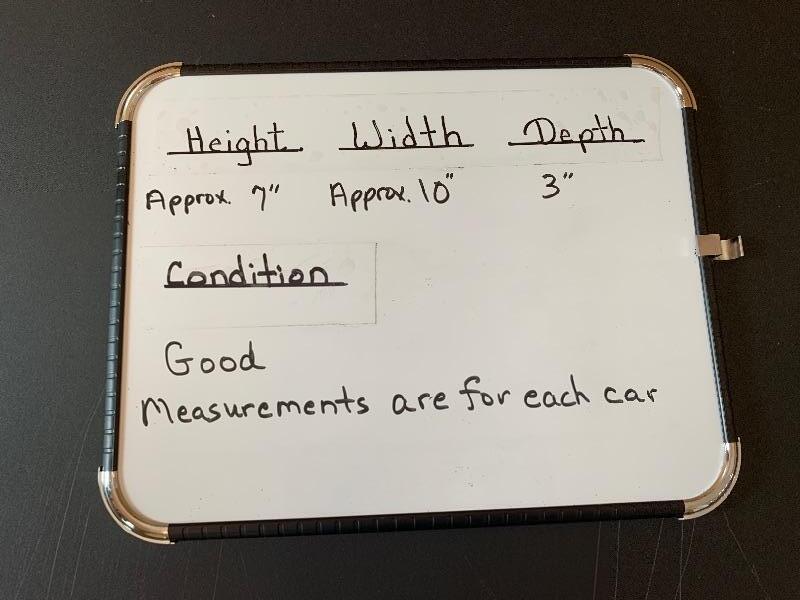 Height Width Depth
Approx. 7" Approx. 10" 3"
Condition
Good
Measurements are for each car